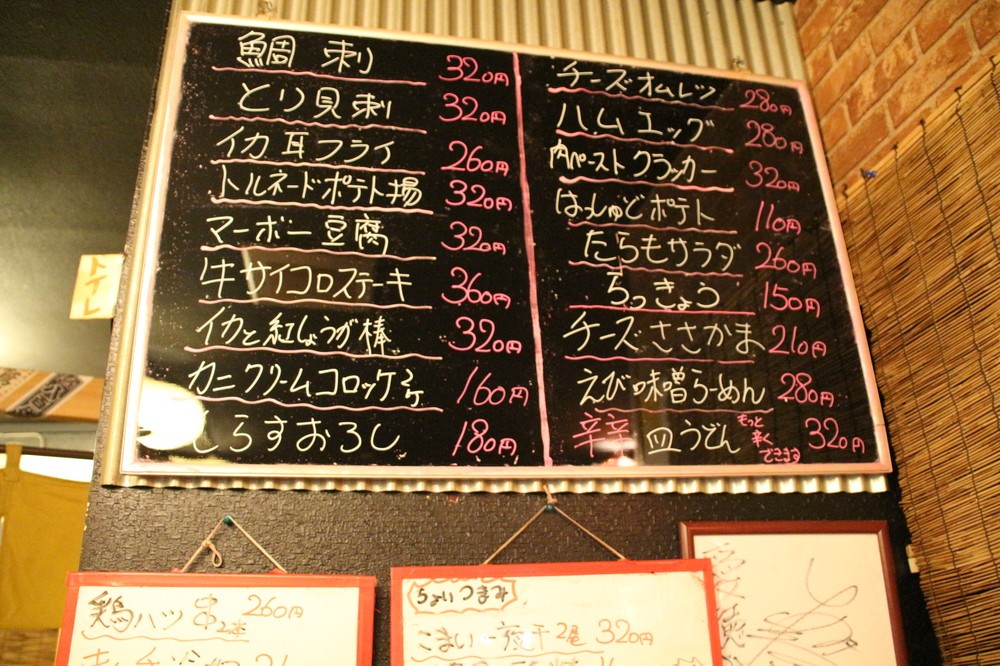 鯛刺 320円
とり貝刺 320円
イカ耳フライ 260円
トルネードポテト揚 320円
マーボー豆腐 320円
牛サイコロステーキ 360円
イカと紅しょうが棒 320円
カニクリームコロッケ 160円
しらすおろし 180円
チーズオムレツ 280円
ハムエッグ 280円
肉ペーストクラッカー 320円
はっしゅどポテト 110円
たらもサラダ 260円
らっきょう 150円
チーズささかま 210円
えび味噌らーめん 280円
辛辛皿うどん もっと辛くできます 320円
トイレ
鶏ハツ串 2本 260円
ちょいつまみ
こまい一夜干2尾 320円